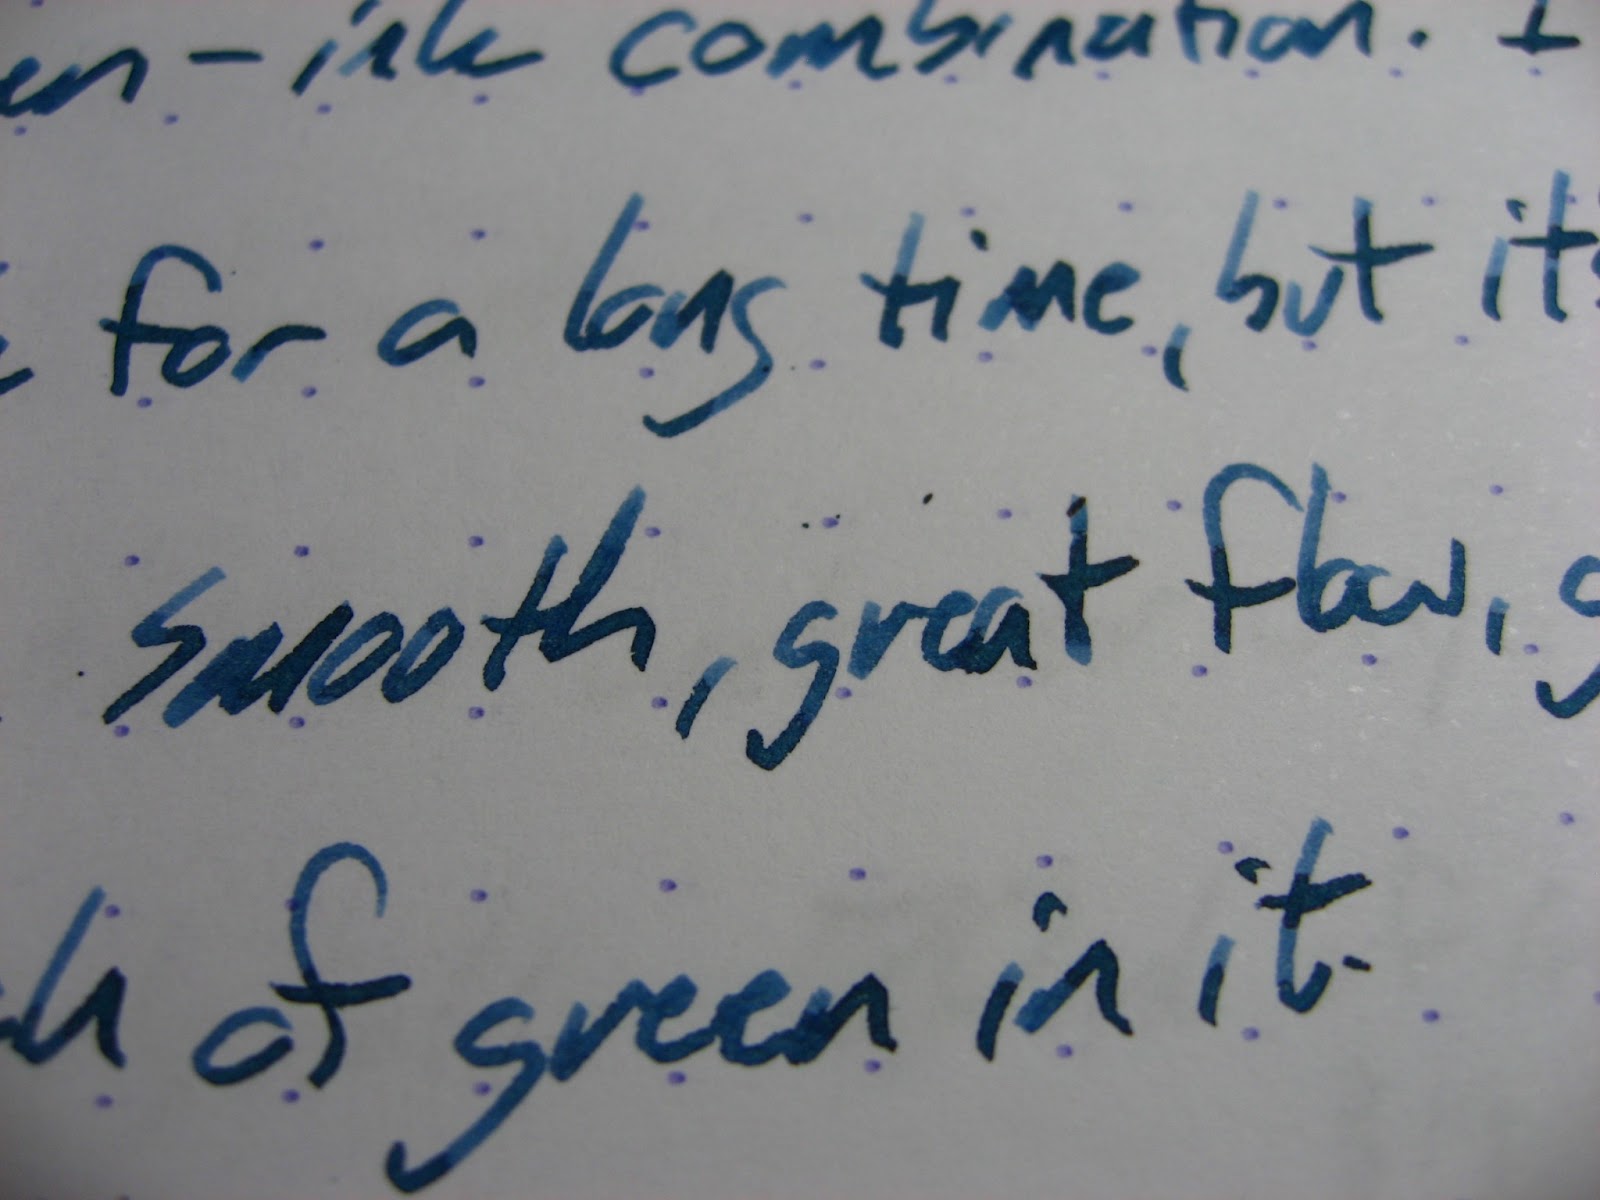 -ink combination. I
for a long time, but it's
smooth, great flow, g
of green in it.